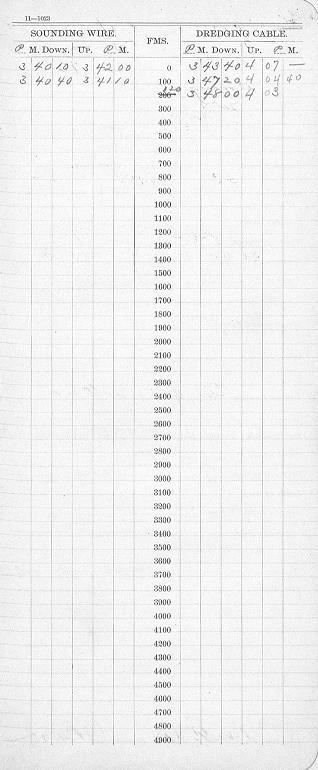 11—1023
SOUNDING WIRE. FMS. DREDGING CABLE.
P. M. DOWN. UP. P. M. P. M. DOWN. UP. P. M.
3 40 10 3 42 00 0 3 43 40 4 07 —
3 40 40 3 41 10 100 3 47 20 4 04 40
120
200 3 48 00 4 03
300
400
500
600
700
800
900
1000
1100
1200
1300
1400
1500
1600
1700
1800
1900
2000
2100
2200
2300
2400
2500
2600
2700
2800
2900
3000
3100
3200
3300
3400
3500
3600
3700
3800
3900
4000
4100
4200
4300
4400
4500
4600
4700
4800
4900